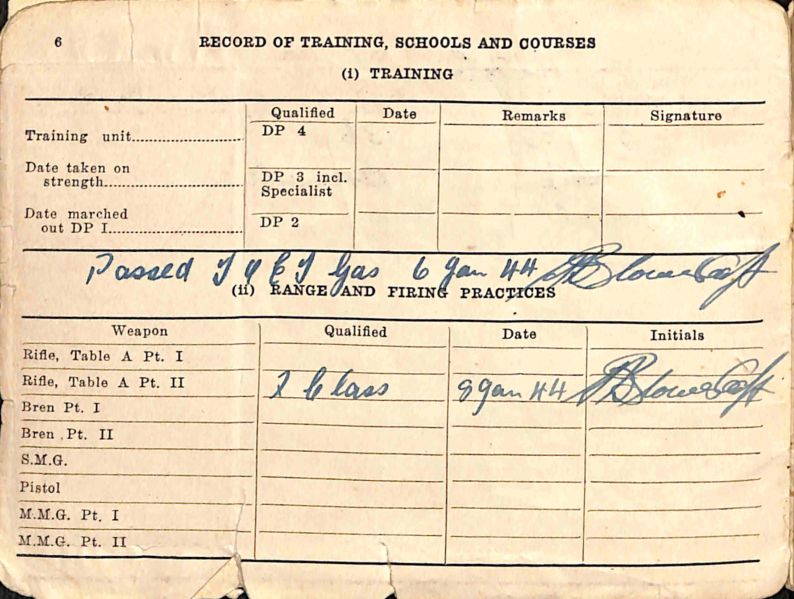 6 RECORD OF TRAINING, SCHOOLS AND COURSES
(i) TRAINING
Qualified Date Remarks Signature
Training unit DP 4
Date taken on
strength DP 3 incl.
Specialist
Date marched
out DP I DP 2
Passed T O E T Gas 6 Jan 44
(ii) RANGE AND FIRING PRACTICES
Weapon Qualified Date Initials
Rifle, Table A Pt. I
Rifle, Table A Pt. II 2 Class 8 Jan 44
Bren Pt. I
Bren Pt. II
S.M.G.
Pistol
M.M.G. Pt. I
M.M.G. Pt. II